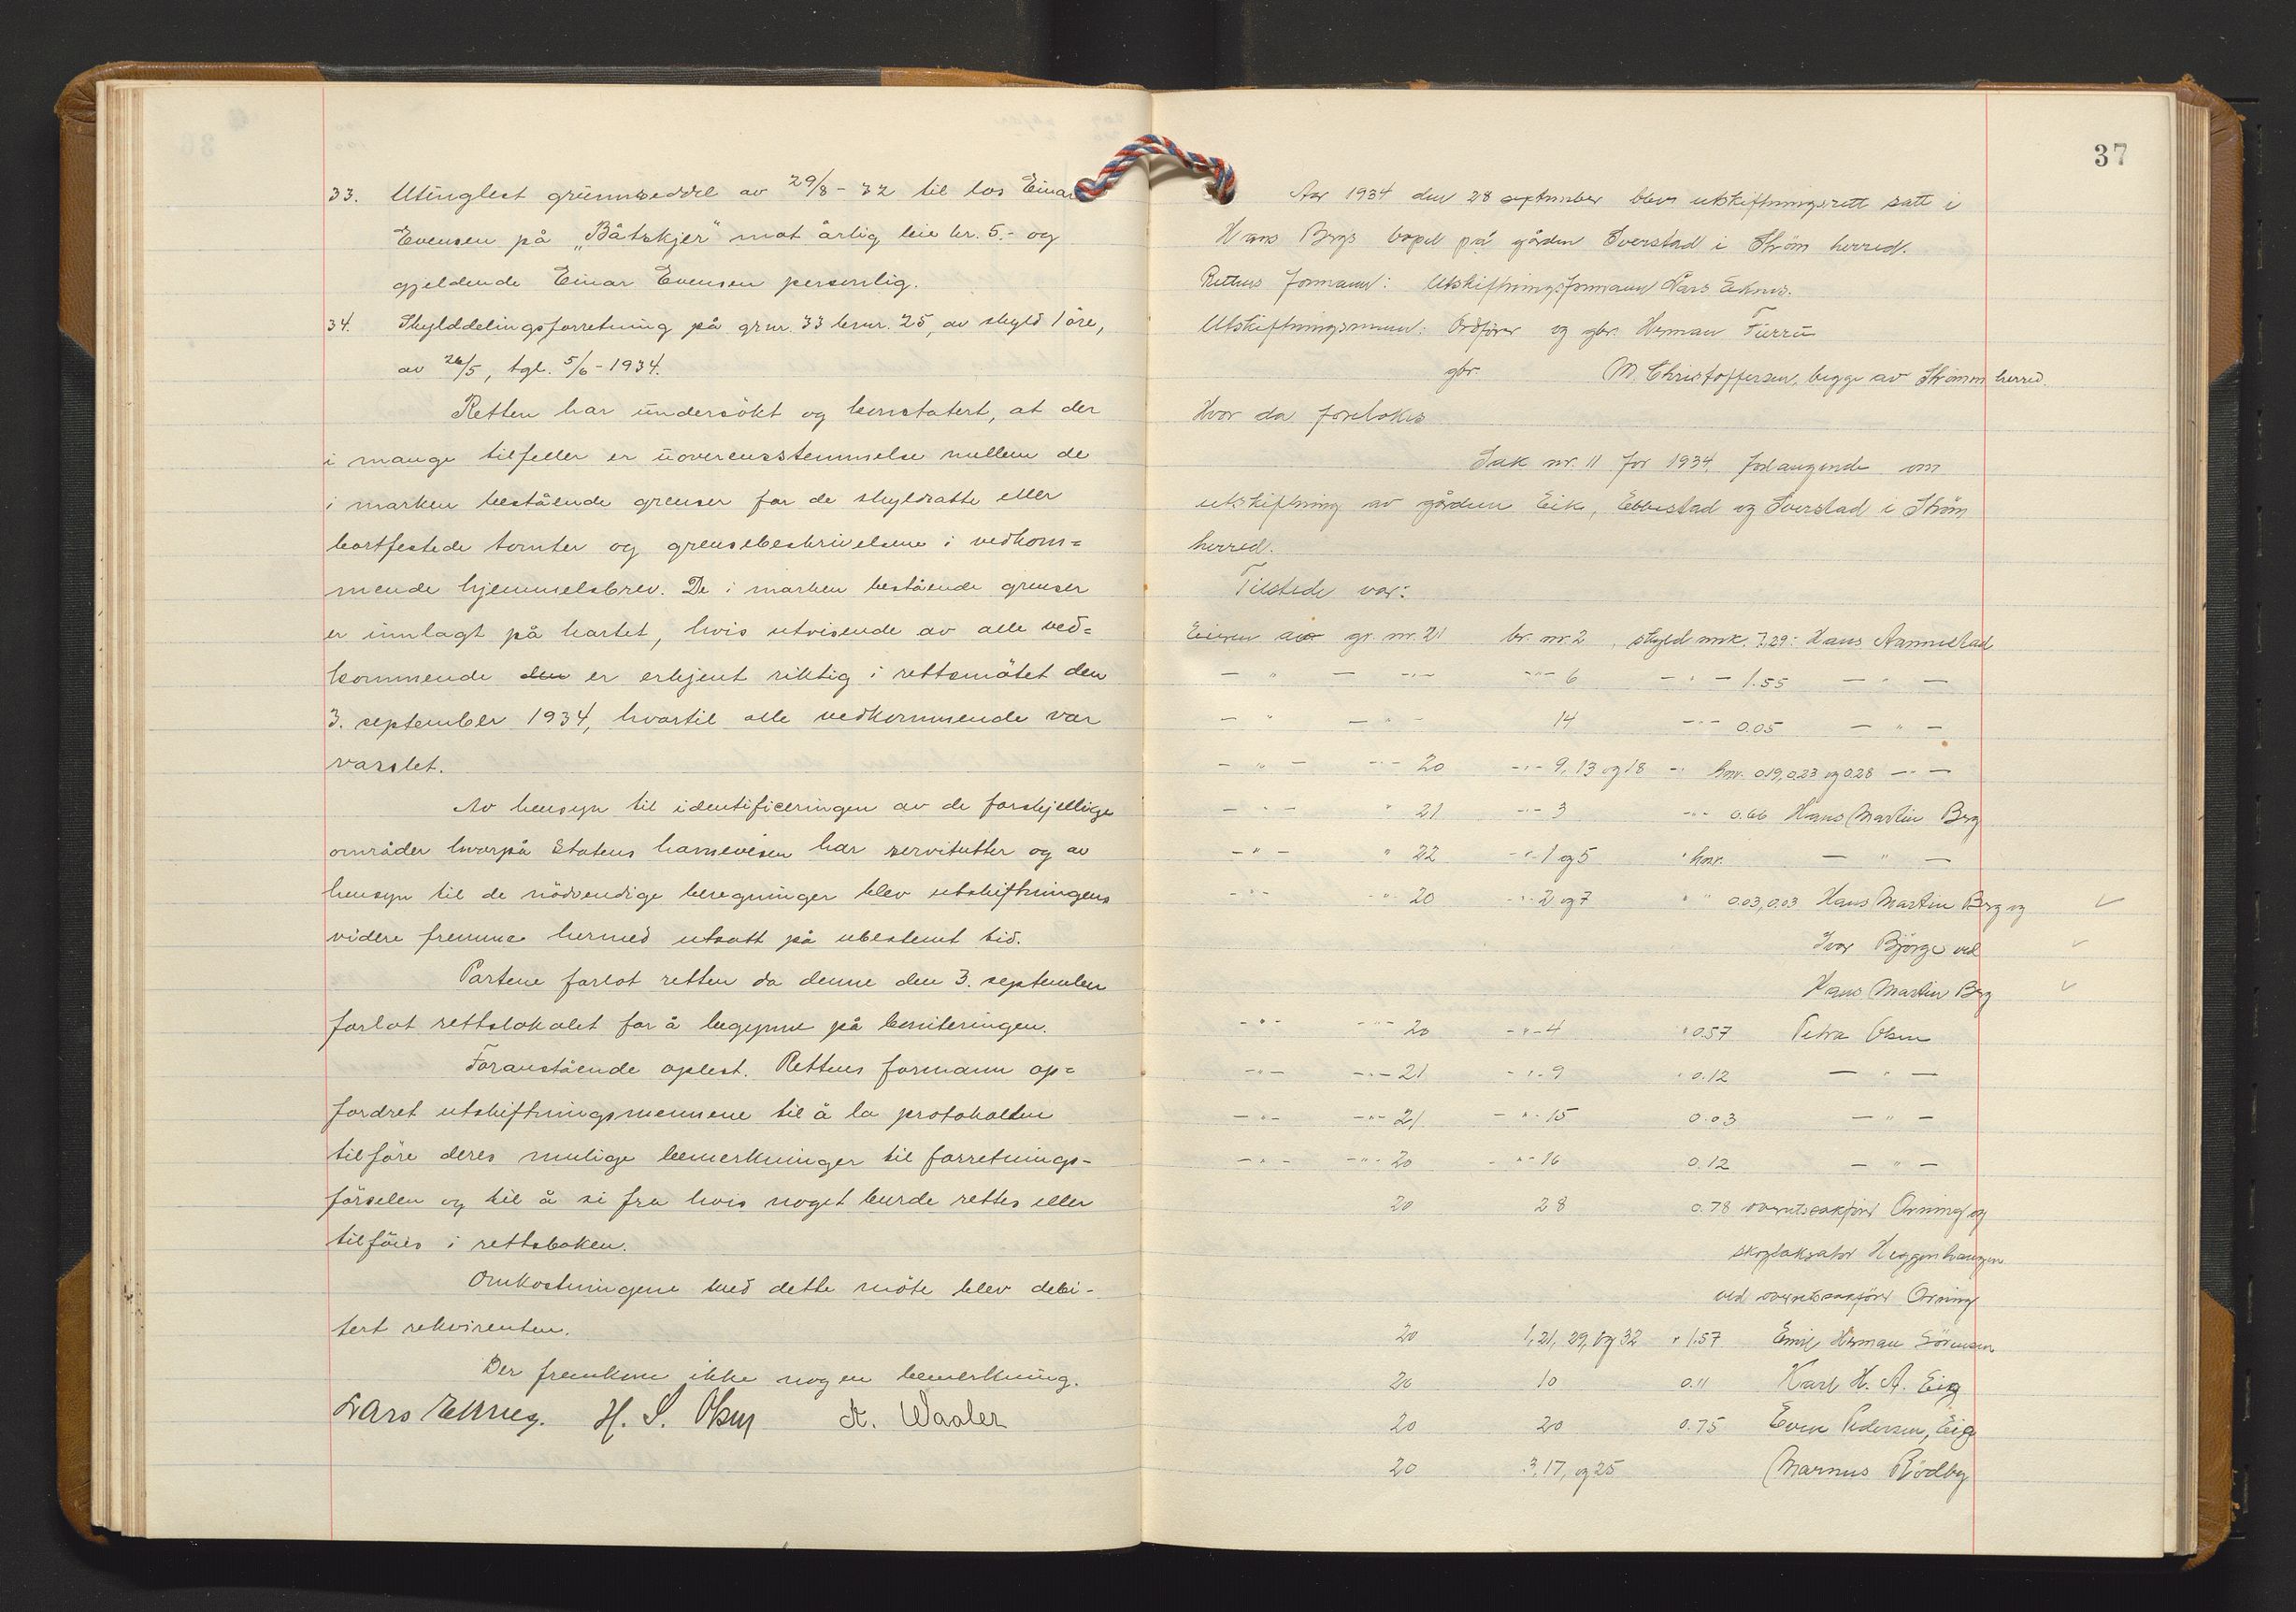 33. Utinglest grunnseddel av 29/8 - 32 til los Einar
Evensen på „Båtskjer" mot årlig leie kr. 5.- og
gjeldende Einar Evensen personlig.
34. Skylddelingsforretning på grnr. 33 brnr. 25, av skyld 1 øre,
av 26/5, tgl. 5/6 - 1934.
Retten har undersökt og konstatert, at der
i mange tilfeller er uoverensstemmelse mellem de
i marken bestående grenser for de skyldsatte eller
bortfestede tomter og grensebeskrivelsene i vedkom=
mende hjemmelsbrev. De i marken bestående grenser
er innlagt på kartet, hvis utvisende av alle ved=
kommende den er erkjent riktig i rettsmötet den
3. september 1934, hvortil alle vedkommende var
varslet.
Av hensyn til identificeringen av de forskjellige
områder hvorpå Statens havnevesen har servitutter og av
hensyn til de nödvendige beregninger blev utskiftningens
videre fremme hermed utsatt på ubestemt tid.
Partene forlot retten da denne den 3. september
forlot rettslokalet for å begynne på boniteringen.
Foranstående oplest. Rettens formann op=
fordret utskiftningsmennene til å la protokollen
tilföre deres mulige bemerkninger til forretnings-
förselen og til å si fra hvis noget burde rettes eller
tilföies i rettsboken.
Omkostningene med dette möte blev debi-
tert rekvirenten.
Der fremkom ikke nogen bemerkning.
Lars Eknes. H. S. Olsen A. Waaler
37
Aar 1934 den 28 september blev utskiftningsrett satt i
Hans Bergs bopel på gården Sverstad i Ström herred.
Rettens formann: Utskiftningsformann Lars Eknes.
Utskiftningsmenn: Ordförer og gbr. Herman Furru
gbr. M. Christoffersen, begge av Strömm herred.
Hvor da foretokes
Sak nr. 11 for 1934 forlangende om
utskiftning av gårdene Eik, Ebbestad og Sverstad i Ström
herred.
Tilstede var:
Eieren av gr. nr. 21 br. nr. 2, skyld mrk. 7,29: Hans Aannestad
— " — — " — - " - 6 — " — 1.55 — " —
— " — — " — 14 - " - 0.05 — " —
— " — - " - 20 - " - 9, 13 og 18 - " hnr. 0.19, 0.23 og 0.28 — " —
— " — " 21 - " - 3 - " - 0.66 Hans Martin Berg
— " — " 22 - " - 1 og 5 " hnr. — " —
- " - - " 20 - " - 2 og 7 " " 0.03, 0.03 Hans Martin Berg og ✓
Ivar Björge ved ✓
Hans Martin Berg ✓
- " - - " - 20 - " - 4 " 0.57 Petra Olsen
- " - - " - 21 - " - 9 " 0.12 — " —
- " - - " - 21 - " - 15 0.03 — " —
- " - - " - 20 - " - 16 0.12 — " —
20 28 0.78 overrettssakförer Orning og
skogtaksator Heggenhaugen
ved overrettssakförer Orning
20 1, 21, 29, og 32 " 1.57 Emil Herman Sörensen
20 10 0.11 Karl H. A. Eig
20 20 0.75 Even Pedersen, Eig
20 3, 17, og 25 Marnus Rödby